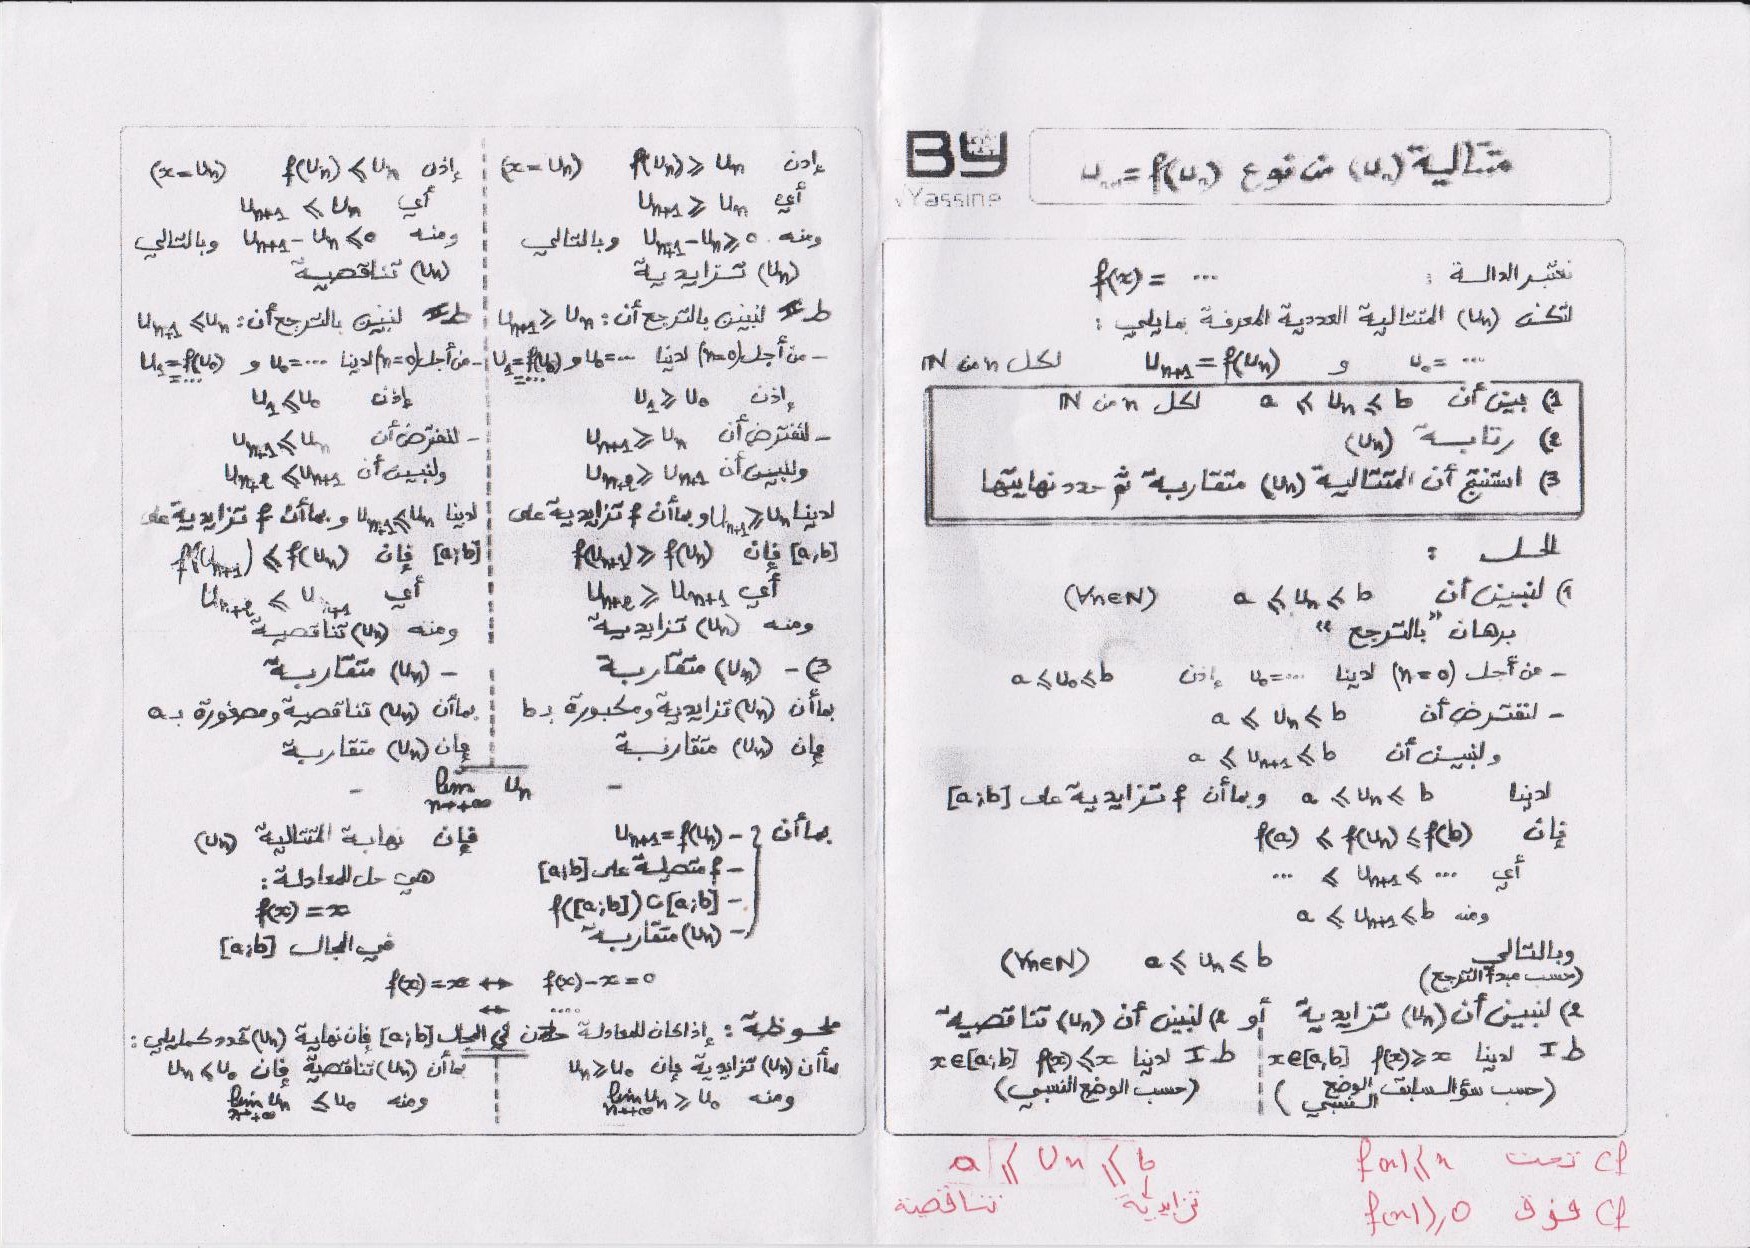 متتالية (Un) من نوع Un+1 = f(Un)
BY
Yassine
نعتبر الدالة : f(x) = ...
لتكن (Un) المتتالية العددية المعرفة بما يلي :
U0 = ... و Un+1 = f(Un) لكل n من IN
1) بين أن a ⩽ Un ⩽ b لكل n من IN
2) رتابة (Un)
3) استنتج أن المتتالية (Un) متقاربة ثم حدد نهايتها
الحل :
1) لنبين أن a ⩽ Un ⩽ b (∀n∈N)
برهان "بالترجع"
- من أجل (n=0) لدينا U0=... إذن a ⩽ U0 ⩽ b
- لنفترض أن a ⩽ Un ⩽ b
ولنبين أن a ⩽ Un+1 ⩽ b
لدينا a ⩽ Un ⩽ b وبما أن f تزايدية على [a;b]
فإن f(a) ⩽ f(Un) ⩽ f(b)
أي ... ⩽ Un+1 ⩽ ...
ومنه a ⩽ Un+1 ⩽ b
وبالتالي a ⩽ Un ⩽ b (∀n∈N)
(حسب مبدأ الترجع)
2) لنبين أن (Un) تزايدية أو 2) لنبين أن (Un) تناقصية
ط I لدينا f(x) ⩾ x x∈[a;b]
(حسب سؤال سابق الوضع النسبي)
ط I لدينا f(x) ⩽ x x∈[a;b]
(حسب الوضع النسبي)
Cf تحت f(x) ⩽ x
Cf فوق f(x) ⩾ 0
a ⩽ Un ⩽ b
تزايدية
تناقصة
إذن f(Un) ⩾ Un (x=Un)
أي Un+1 ⩾ Un
ومنه Un+1 - Un ⩾ 0 وبالتالي
(Un) تزايدية
ط II لنبين بالترجع أن: Un+1 ⩾ Un
- من أجل (n=0) لدينا U0=... و U1=f(U0)
=...
إذن U1 ⩾ U0
- لنفترض أن Un+1 ⩾ Un
ولنبين أن Un+2 ⩾ Un+1
لدينا Un+1 ⩾ Un وبما أن f تزايدية على
[a;b] فإن f(Un+1) ⩾ f(Un)
أي Un+2 ⩾ Un+1
ومنه (Un) تزايدية
3) - (Un) متقاربة
بما أن (Un) تزايدية ومكبورة بـ b
فإن (Un) متقاربة
إذن f(Un) ⩽ Un (x=Un)
أي Un+1 ⩽ Un
ومنه Un+1 - Un ⩽ 0 وبالتالي
(Un) تناقصية
ط II لنبين بالترجع أن: Un+1 ⩽ Un
- من أجل (n=0) لدينا U0=... و U1=f(U0)
=...
إذن U1 ⩽ U0
- لنفترض أن Un+1 ⩽ Un
ولنبين أن Un+2 ⩽ Un+1
لدينا Un+1 ⩽ Un وبما أن f تزايدية على
[a;b] فإن f(Un+1) ⩽ f(Un)
أي Un+2 ⩽ Un+1
ومنه (Un) تناقصية
- (Un) متقاربة
بما أن (Un) تناقصية ومصغورة بـ a
فإن (Un) متقاربة
- lim Un -
n→+∞
بما أن - Un+1 = f(Un)
- f متصلة على [a;b]
- f([a;b]) ⊂ [a;b]
- (Un) متقاربة
فإن نهاية المتتالية (Un)
هي حل للمعادلة :
f(x) = x
في المجال [a;b]
f(x) = x ↔ f(x) - x = 0
↔ ....
ملحوظة : إذا كان للمعادلة حلان في المجال [a;b] فإن نهاية (Un) تحدد كما يلي :
بما أن (Un) تزايدية فإن Un ⩾ U0
ومنه lim Un ⩾ U0
n→+∞
بما أن (Un) تناقصية فإن Un ⩽ U0
ومنه lim Un ⩽ U0
n→+∞